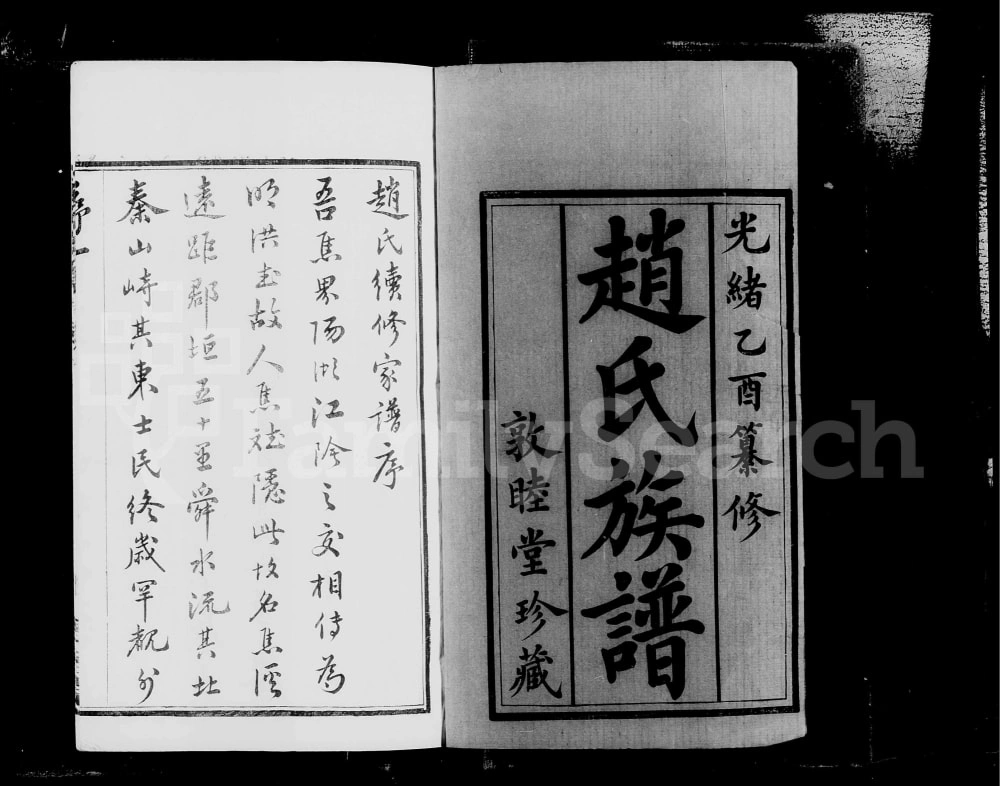 光緒乙酉纂修
趙氏族譜
敦睦堂珍藏
趙氏續修家譜序
吾焦界陽湖江陰之交相傳為
明洪武故人焦 隱此故名焦溪
遠距郡垣五十里舜水流其北
秦山峙其東士民終歲罕覩外
FamilySearch